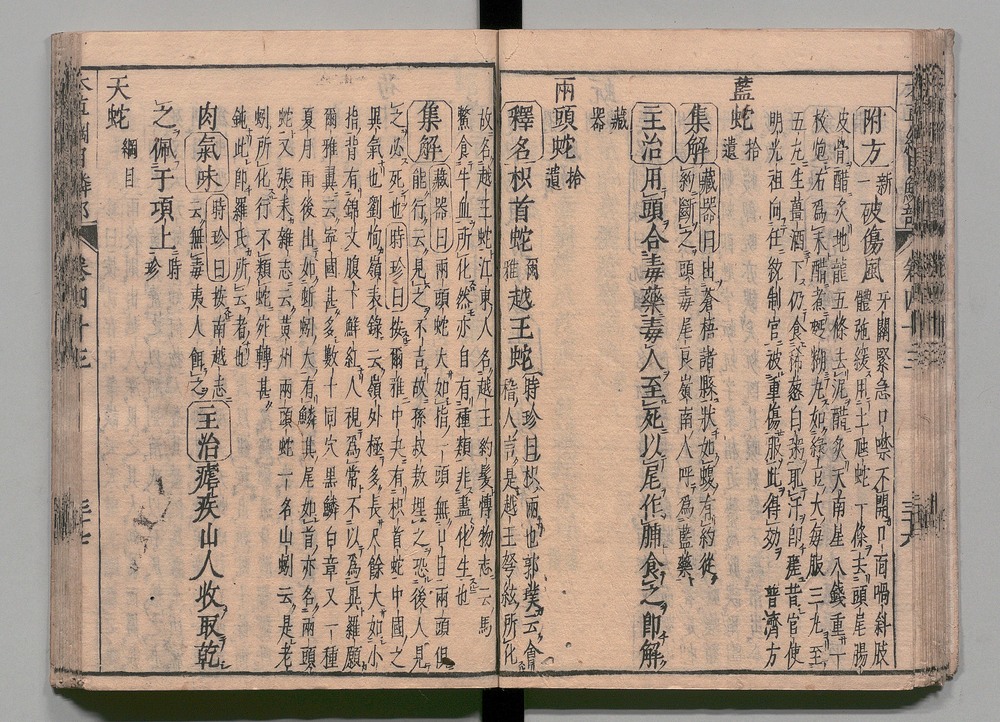 附方新一破傷風牙關緊急口噤不開口面喎斜肢
體弛緩用土虺蛇一條去頭尾腸
皮骨醋炙地龍五條去泥醋炙天南星八錢重一
枚炮右爲末醋煮麪糊丸如綠豆大每服三丸至
五丸生薑酒下仍食稀葱白粥取汗即瘥昔宮使
明光祖向任敘州制官被重傷服此得効 普濟方
藍蛇拾遺
集解藏器曰出蒼梧諸縣狀如蝮有約從
約斷之頭毒尾良嶺南人呼爲藍藥
主治用頭合毒藥毒人至死以尾作脯食之即解
藏器
兩頭蛇拾遺
釋名枳首蛇爾雅越王蛇時珍曰枳兩也郭璞云會
稽人言是越王弩絃所化
故名越王蛇江東人名越王約髮傳物志云馬
鱉食牛血所化然亦自有種類非盡化生也
集解藏器曰兩頭蛇大如指一頭無口目兩頭俱
能行云見之不吉故孫叔敖埋之恐後人見
之必死也時珍曰按爾雅中央有枳首蛇中國之
異氣也劉恂嶺表錄云嶺外極多長尺餘大如小
指背有錦文腹下鮮紅人視爲常不以爲異羅願
爾雅翼云寧國甚多數十同穴黑鱗白章又一種
夏月雨後出如蚯蚓大有鱗其尾如首亦名兩頭
蛇又張耒雜志云黃州兩頭蛇一名山蚓云是老
蚓所化行不類蛇宛轉甚
鈍此即羅氏所云者也
肉氣味時珍曰按南越志云無毒夷人餌之主治瘧疾山人收取乾
之佩于項上時珍
天蛇綱目
卷四十三
三十七